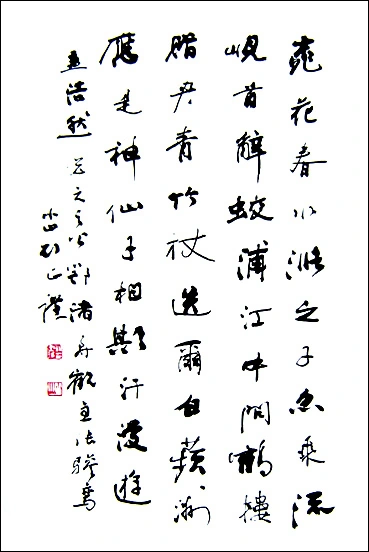 桃花春水漲之子忽乘流
峴首辭蛟浦江中問鶴樓
贈君青竹杖送爾白蘋洲
應是神仙子相期汗漫遊
孟浩然送元公之鄂渚尋觀主張驂鸞